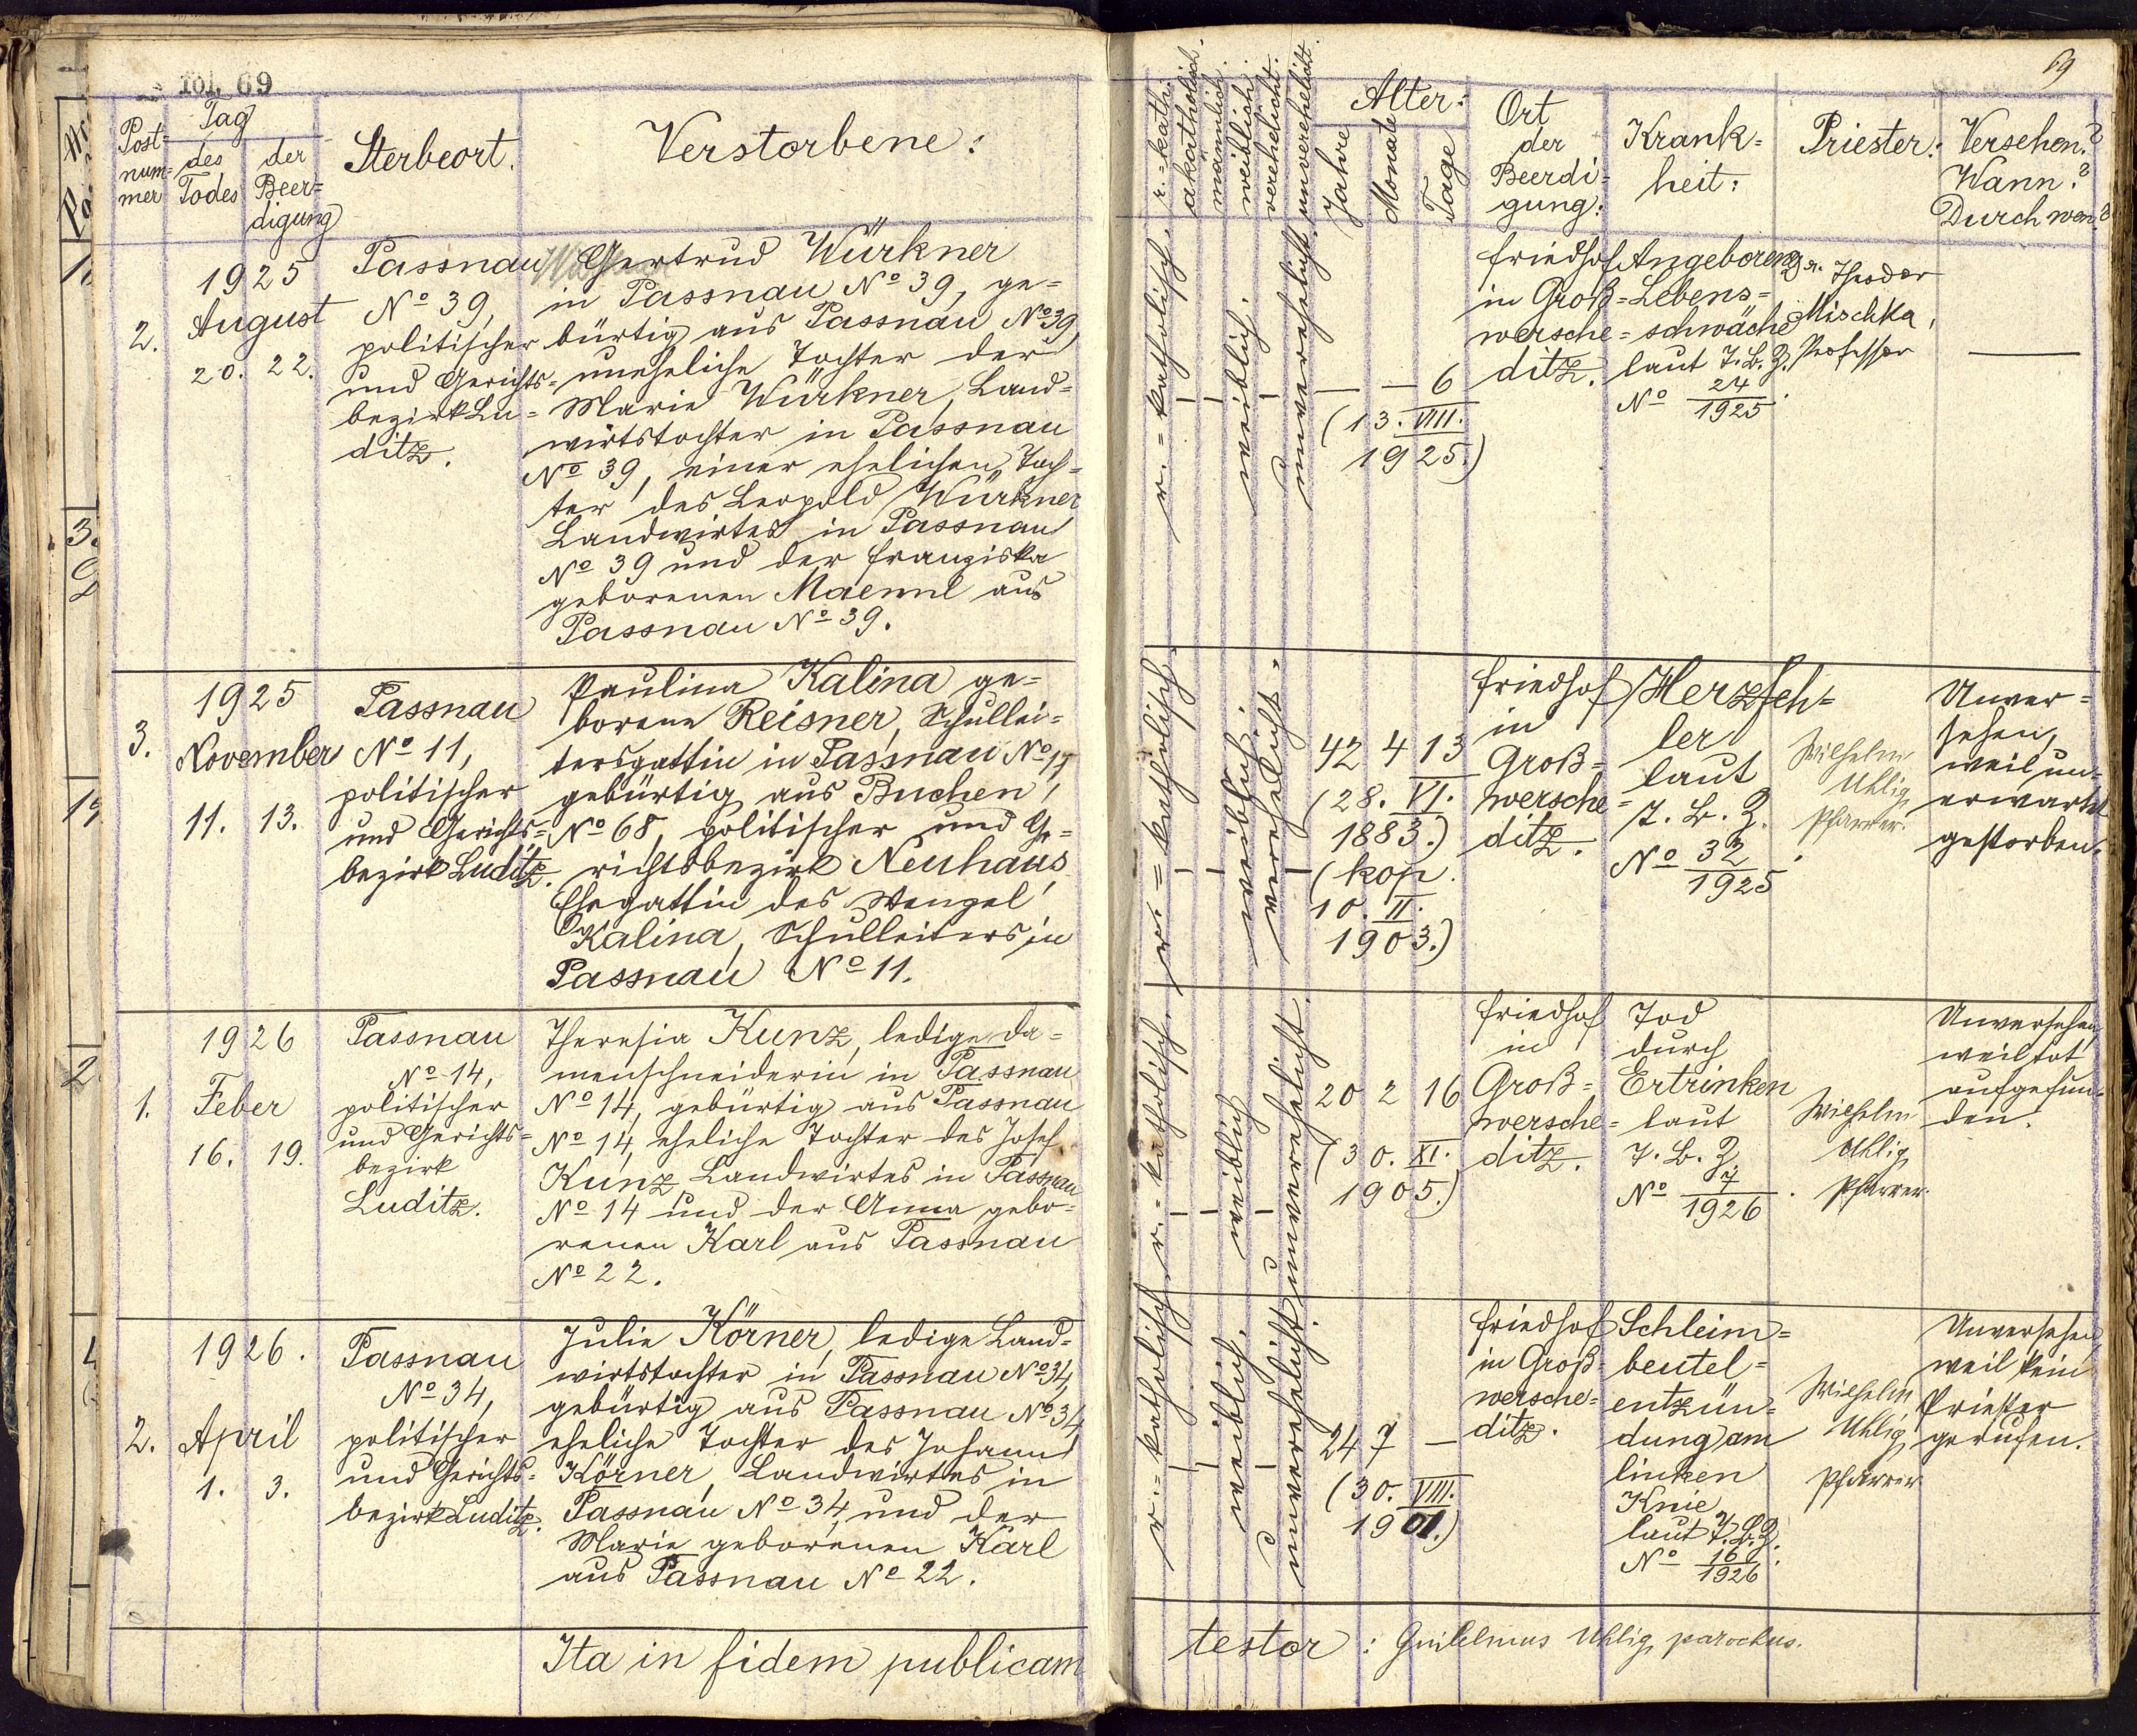 fol. 69
69
Post=
num=
mer
Tag
des
Todes
der
Beer=
digung
Sterbeort.
Verstorbene:
r.=kath.
akatholisch.
männlich.
weiblich.
verehelicht.
unverehelicht.
Alter:
Jahre
Monate
Tage
Ort
der
Beerdi=
gung:
Krank=
heit:
Priester:
Versehen?
Wann?
Durch wen?
2.
1925
August
20. 22.
Passnau
No 39,
politischer
und Gerichts=
bezirk Lu=
ditz.
Gertrud Würkner
in Passnau No 39, ge=
bürtig aus Passnau No 39,
uneheliche Tochter der
Marie Würkner, Land=
wirtstochter in Passnau
No 39, einer ehelichen Toch=
ter des Leopold Würkner
Landwirtes in Passnau
No 39 und der Franziska
geborenen Maennl aus
Passnau No 39.
r.=katholisch.
weiblich.
unverehelicht.
— — 6
(13. VIII.
1925.)
Friedhof
in Groß=
wersche=
ditz.
Angeborene
Lebens=
schwäche
laut T. B. Z.
No 24/1925.
Dr. Theodor
Mischka,
Professor
—
3.
1925
November
11. 13.
Passnau
No 11,
politischer
und Gerichts=
bezirk Luditz.
Paulina Kalina ge=
borene Reisner, Schullei=
tersgattin in Passnau No 11
gebürtig aus Buchen,
No 68, politischer und Ge=
richtsbezirk Neuhaus,
Ehegattin des Wenzel
Kalina, Schulleiters in
Passnau No 11.
r.=katholisch.
weiblich.
verehelicht.
42 4 13
(28. VI.
1883.)
(kop.
10. II.
1903.)
Friedhof
in
Groß=
wersche=
ditz.
Herzfeh=
ler
laut
T. B. Z.
No 32/1925.
Wilhelm
Uhlig,
Pfarrer.
Unver=
sehen,
weil un=
erwartet
gestorben.
1.
1926
Feber
16. 19.
Passnau
No 14,
politischer
und Gerichts=
bezirk
Luditz.
Theresia Kunz, ledige Da=
menschneiderin in Passnau
No 14, gebürtig aus Passnau
No 14, eheliche Tochter des Josef
Kunz, Landwirtes in Passnau
No 14 und der Anna gebo=
renen Karl aus Passnau
No 22.
r.=katholisch.
weiblich
unverehelicht.
20 2 16
(30. XI.
1905.)
Friedhof
in
Groß=
wersche=
ditz.
Tod
durch
Ertrinken
laut
T. B. Z.
No 7/1926.
Wilhelm
Uhlig,
Pfarrer.
Unversehen,
weil tot
aufgefun=
den.
2.
1926.
April
1. 3.
Passnau
No 34,
politischer
und Gerichts=
bezirk Luditz.
Julie Körner, ledige Land=
wirtstochter in Passnau No 34,
gebürtig aus Passnau No 34,
eheliche Tochter des Johann
Körner, Landwirtes in
Passnau No 34 und der
Marie geborenen Karl
aus Passnau No 22.
r.=katholisch.
weiblich.
unverehelicht.
24 7 —
(30. VIII.
1901.)
Friedhof
in Groß=
wersche=
ditz.
Schleim=
beutel=
entzün=
dung am
linken
Knie
laut T. B. Z.
No 16/1926.
Wilhelm
Uhlig,
Pfarrer
Unversehen,
weil kein
Priester
gerufen.
Ita in fidem publicam
testor: Guilelmus Uhlig, parochus.